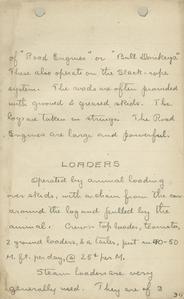 of "Road Engines" or "Bull Donkeys"
These also operate on the Slack-rope
system. The roads are often provided
with grooved & greased skids. The
logs are taken in strings. The Road
Engines are large and powerful.
LOADERS
Operated by animal loading
over skids, with a chain from the car
around the log and pulled by the
animal. Crew: Top loader, teamster,
2 ground loaders, & a tailer, put in 40-50
M. ft. per day, @ 25¢ per M.
Steam loaders are very
generally used. They are of 3